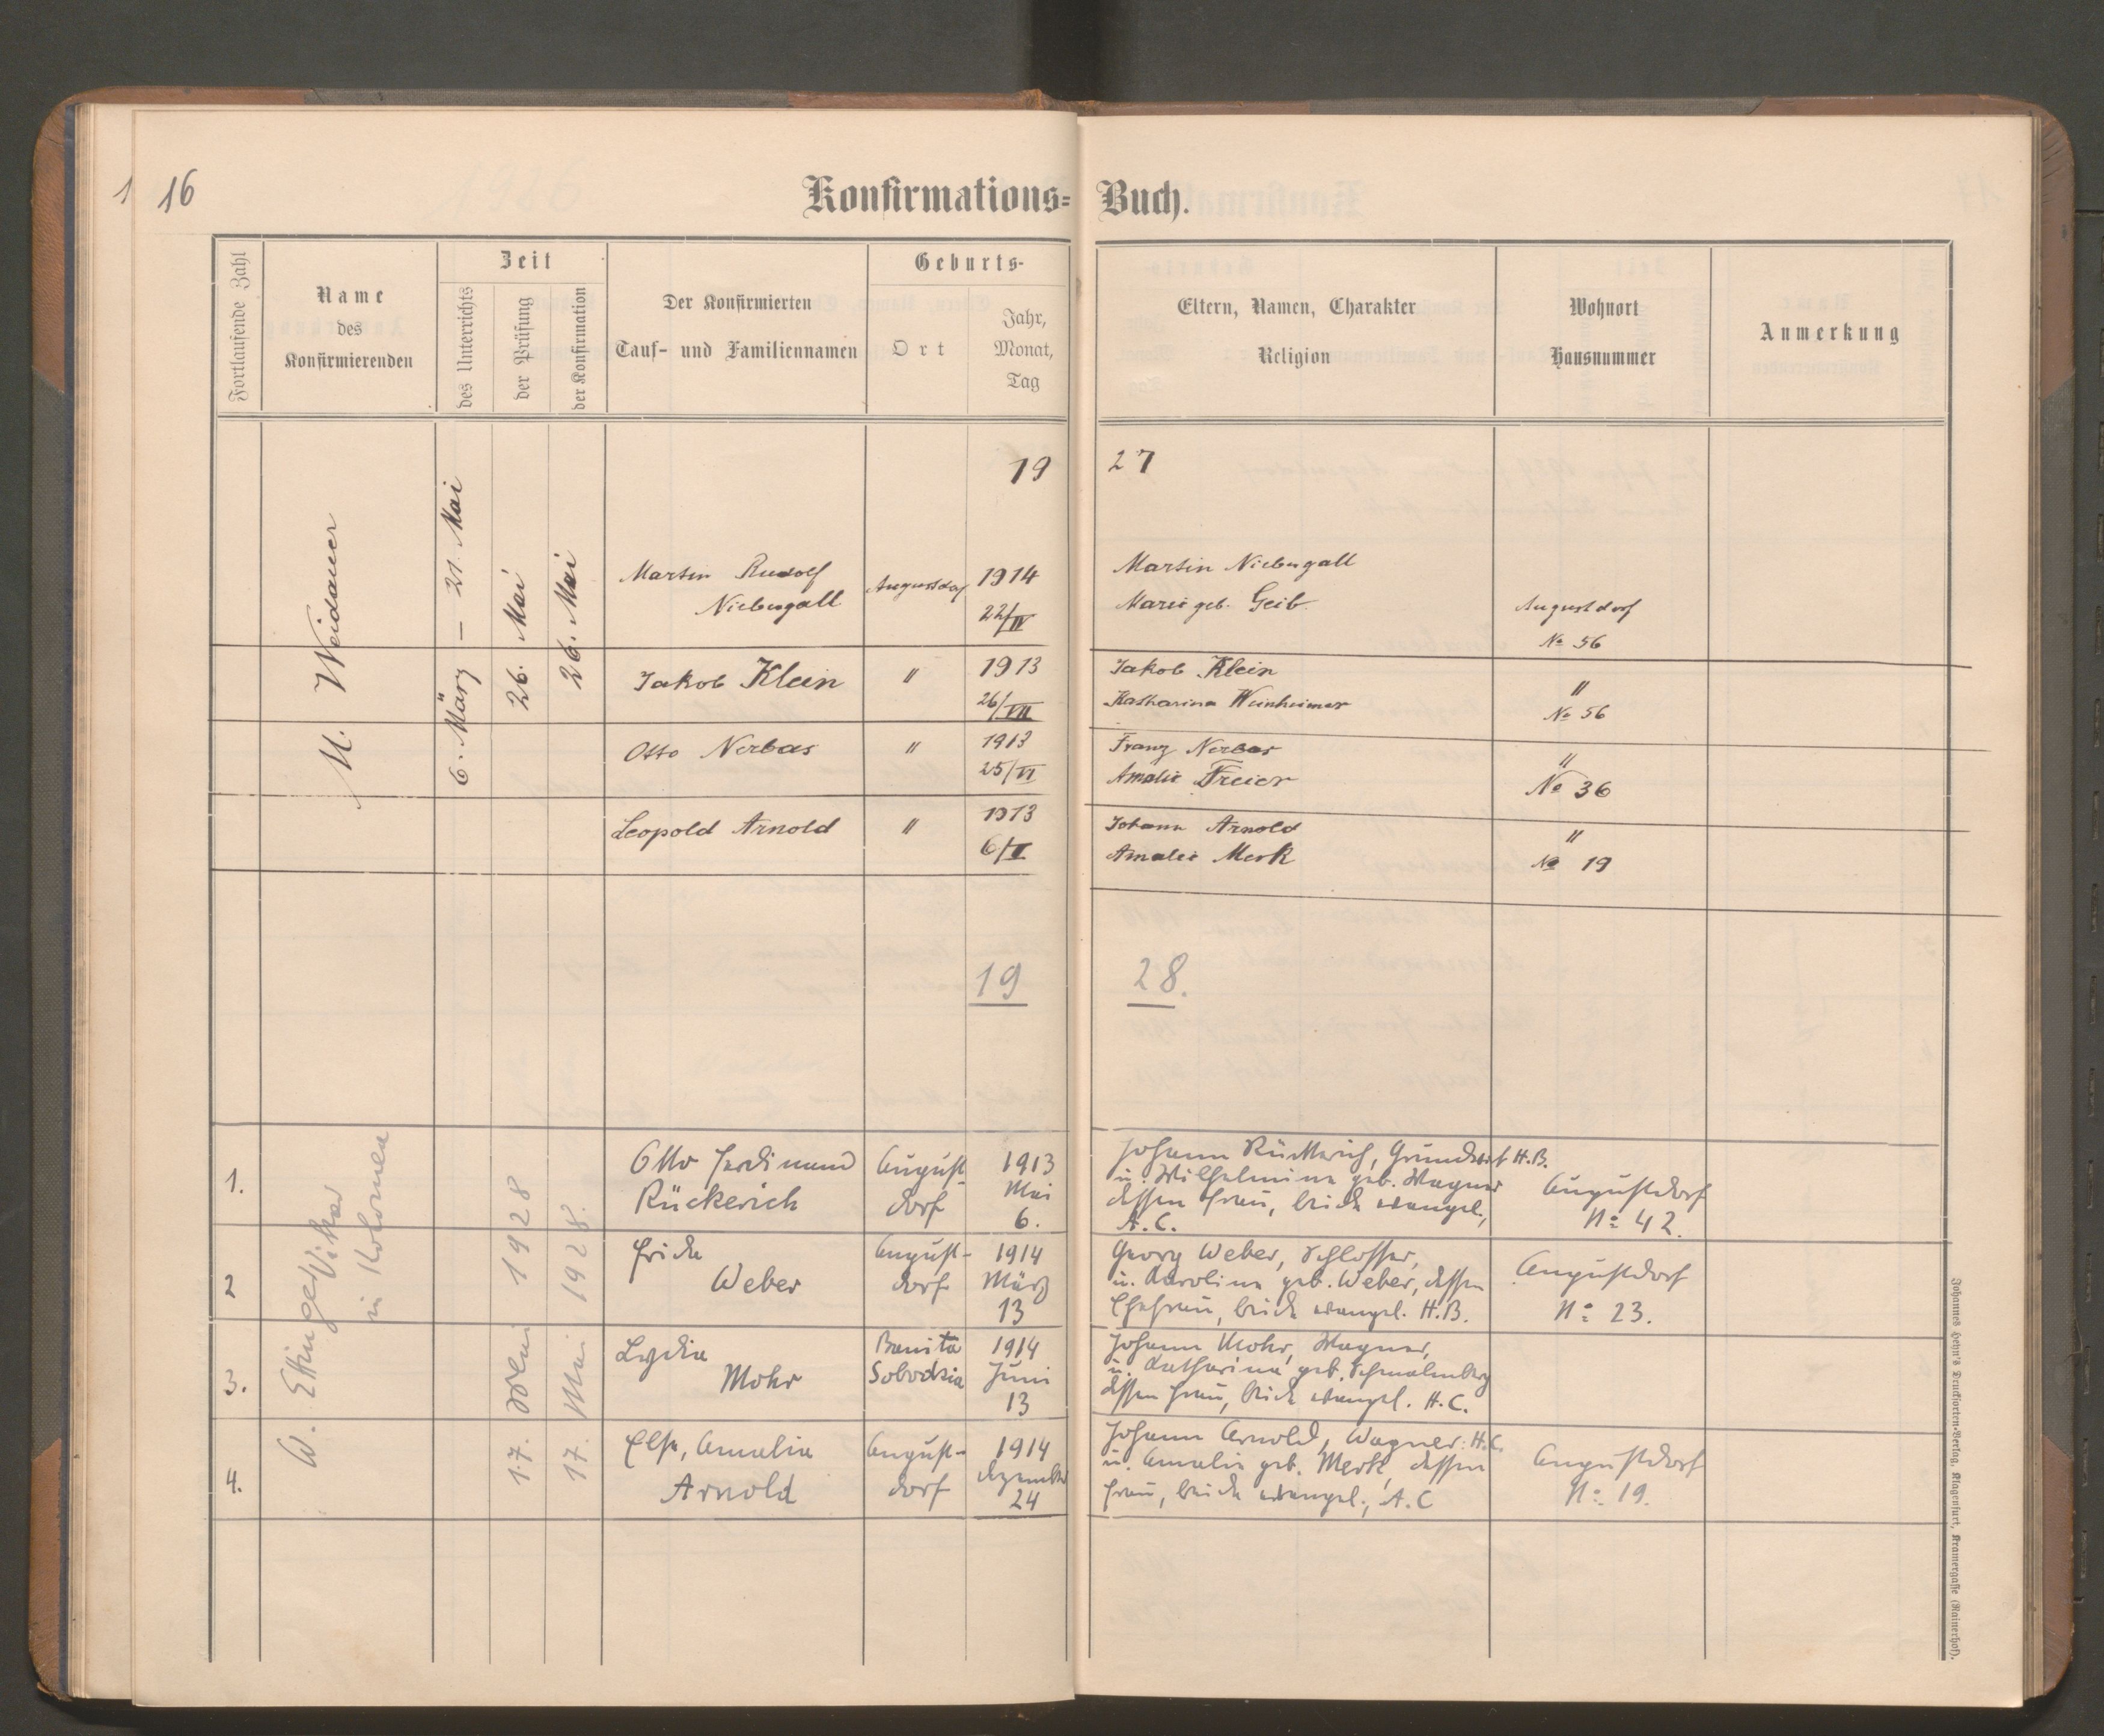 1 16
Konfirmations= Buch.
Fortlaufende Zahl
Name
des
Konfirmierenden
Zeit
des Unterrichts
der Prüfung
der Konfirmation
Der Konfirmierten
Tauf- und Familiennamen
Geburts-
Ort
Jahr,
Monat,
Tag
Eltern, Namen, Charakter
Religion
Wohnort
Hausnummer
Anmerkung
19 27
M. Weidauer
6. März – 21. Mai
26. Mai
26. Mai
Martin Rudolf
Niebergall
Augustdorf
1914
22/IV
Martin Niebergall
Marie geb. Geib
Augustdorf
No 56
Jakob Klein
"
1913
26/VII
Jakob Klein
Katharina Weinheimer
"
No 56
Otto Nerbas
"
1913
25/VI
Franz Nerbas
Amalie Freier
"
No 36
Leopold Arnold
"
1913
6/II
Johann Arnold
Amalie Merk
"
No 19
19 28.
W. Ettinger Vikar
in Kolomea
17. Mai 1928
17. Mai 1928.
1.
Otto Ferdinand
Rückerich
August-
dorf
1913
Mai
6.
Johann Rückerich, Grundwirt H.B.
u. Wilhelmine geb. Wagner
dessen Frau, beide evangel.,
A.C.
Augustdorf
No 42.
2
Frieda
Weber
August-
dorf
1914
März
13
Georg Weber, Schlosser,
u. Karolina geb. Weber, dessen
Ehefrau, beide evangel. H.B.
Augustdorf
No 23.
3.
Lydia
Mohr
Banita
Sobodzia
1914
Juni
13
Johann Mohr, Wagner,
u. Katharina geb. Schmalenberg
dessen Frau, beide evangel. H.C.
4.
Else, Amalia
Arnold
August-
dorf
1914
Dezember
24
Johann Arnold, Wagner. H.C.
u. Amalie geb. Merk, dessen
Frau, beide evangel., A.C
Augustdorf
No 19.
Johannes Heyn's Drucksorten-Verlag, Klagenfurt, Kramergasse (Rainerhof).